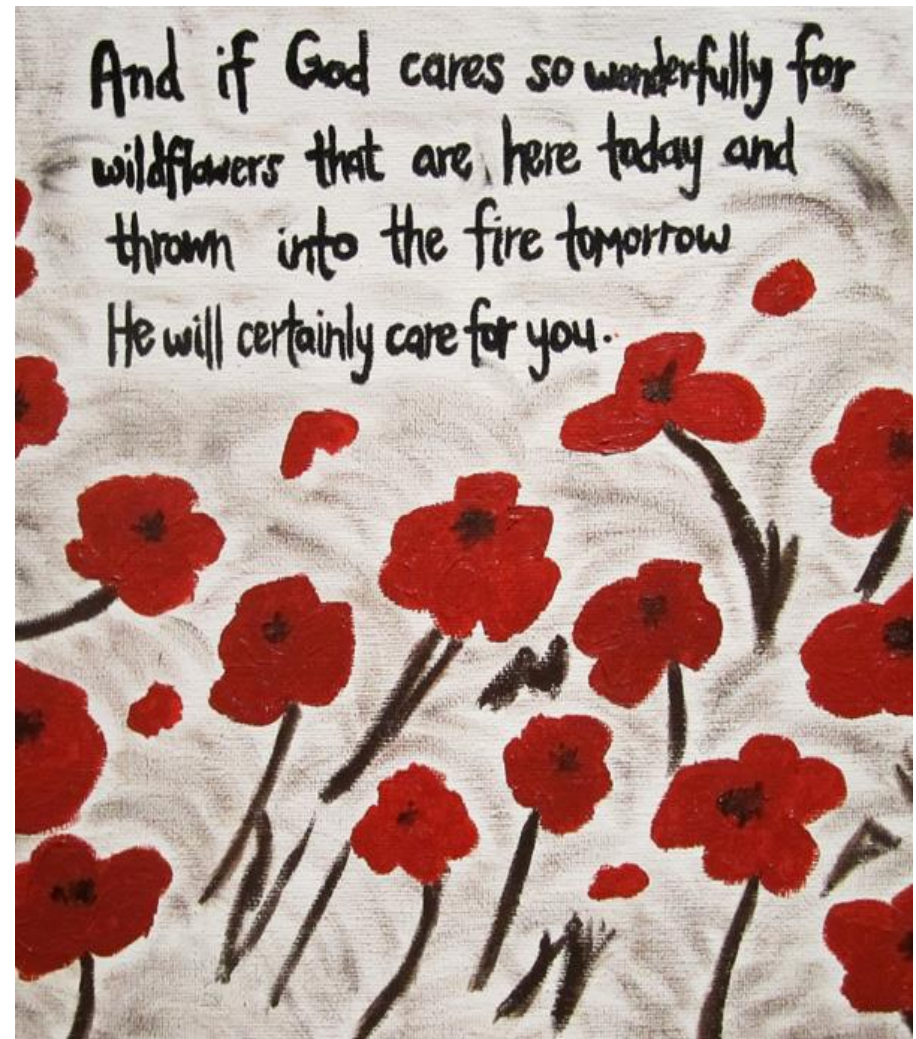 And if God cares so wonderfully for
wildflowers that are here today and
thrown into the fire tomorrow
He will certainly care for you.